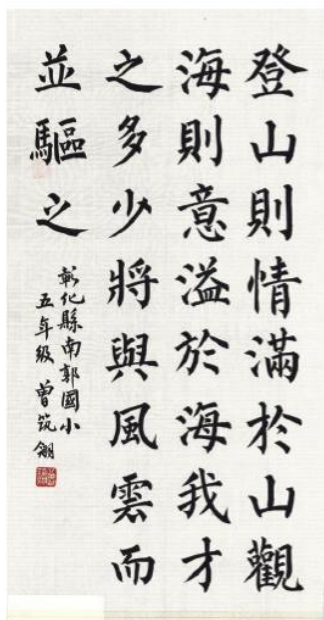 登山則情滿於山觀
海則意溢於海我才
之多少將與風雲而
並驅之
彰化縣南郭國小
五年級 曾筑翎